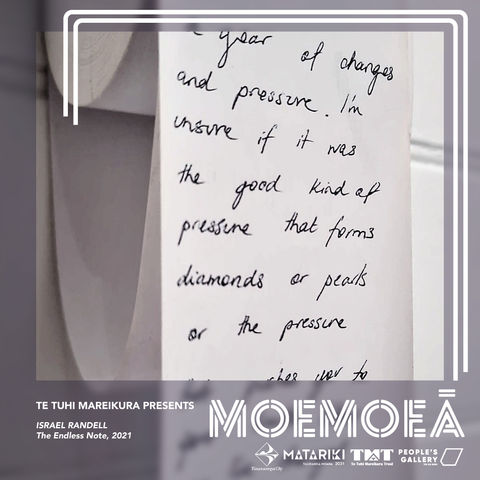 year of changes
and pressure. I'm
unsure if it was
the good kind of
pressure that forms
diamonds or pearls
or the pressure
to
TE TUHI MAREIKURA PRESENTS
MOEMOEĀ
ISRAEL RANDELL
The Endless Note, 2021
Tauranga City
MATARIKI
TAURANGA MOANA 2021
TMT
Te Tuhi Mareikura Trust
PEOPLE'S
GALLERY